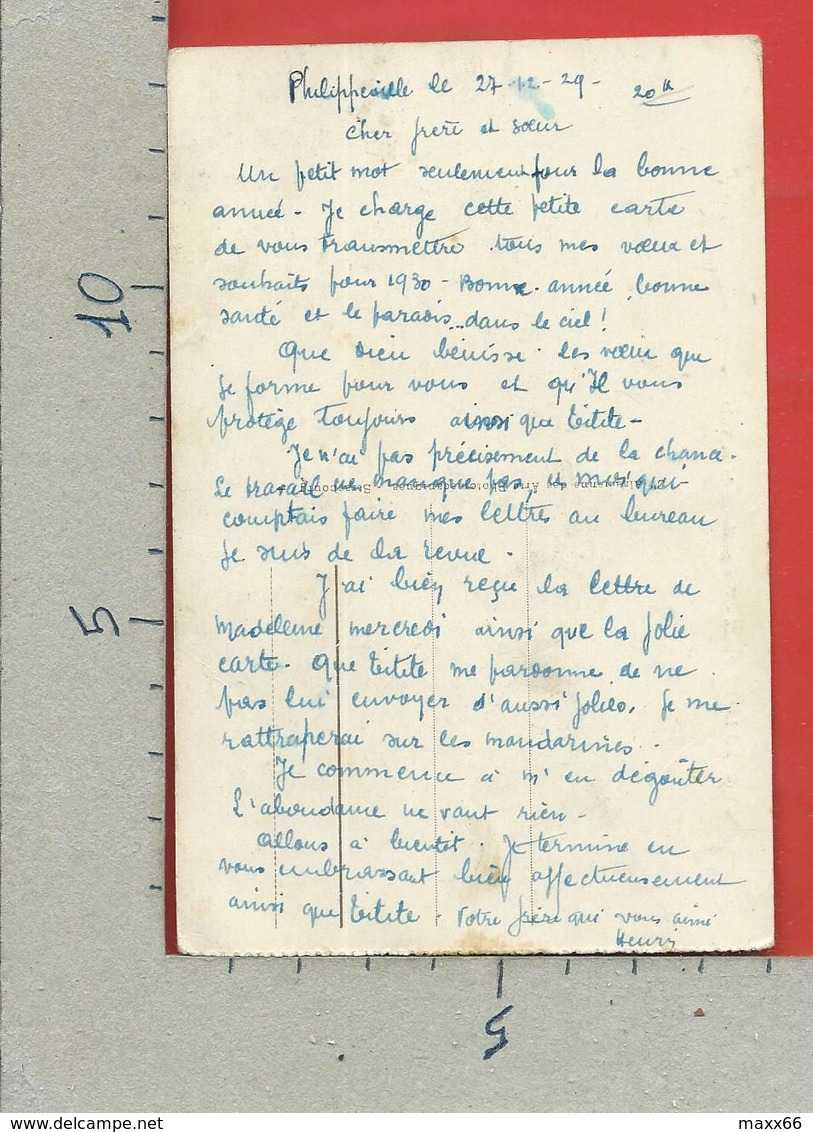 Philippeville le 27-12-29- 20h
Cher frère et sœur
Un petit mot seulement pour la bonne
année - Je charge cette petite carte
de vous transmettre tous mes vœux et
souhaits pour 1930 - Bonne année, bonne
santé et le paradis... dans le ciel!
Que Dieu bénisse les vœux que
je forme pour vous et qu'Il vous
protège toujours ainsi que Titite -
Je n'ai pas précisément de la chance.
Le travail ne manque pas, et moi qui
comptais faire mes lettres au bureau
je suis de la revue.
J'ai bien reçu la lettre de
Madeleine mercredi ainsi que la jolie
carte. Que Titite me pardonne de ne
pas lui envoyer d'aussi jolies, je me
rattraperai sur les mandarines.
Je commence à m'en dégoûter
L'abondance ne vaut rien -
Allons à bientôt. Je termine en
vous embrassant bien affectueusement
ainsi que Titite. Votre frère qui vous aime
Henri
10
5
5
maxx66